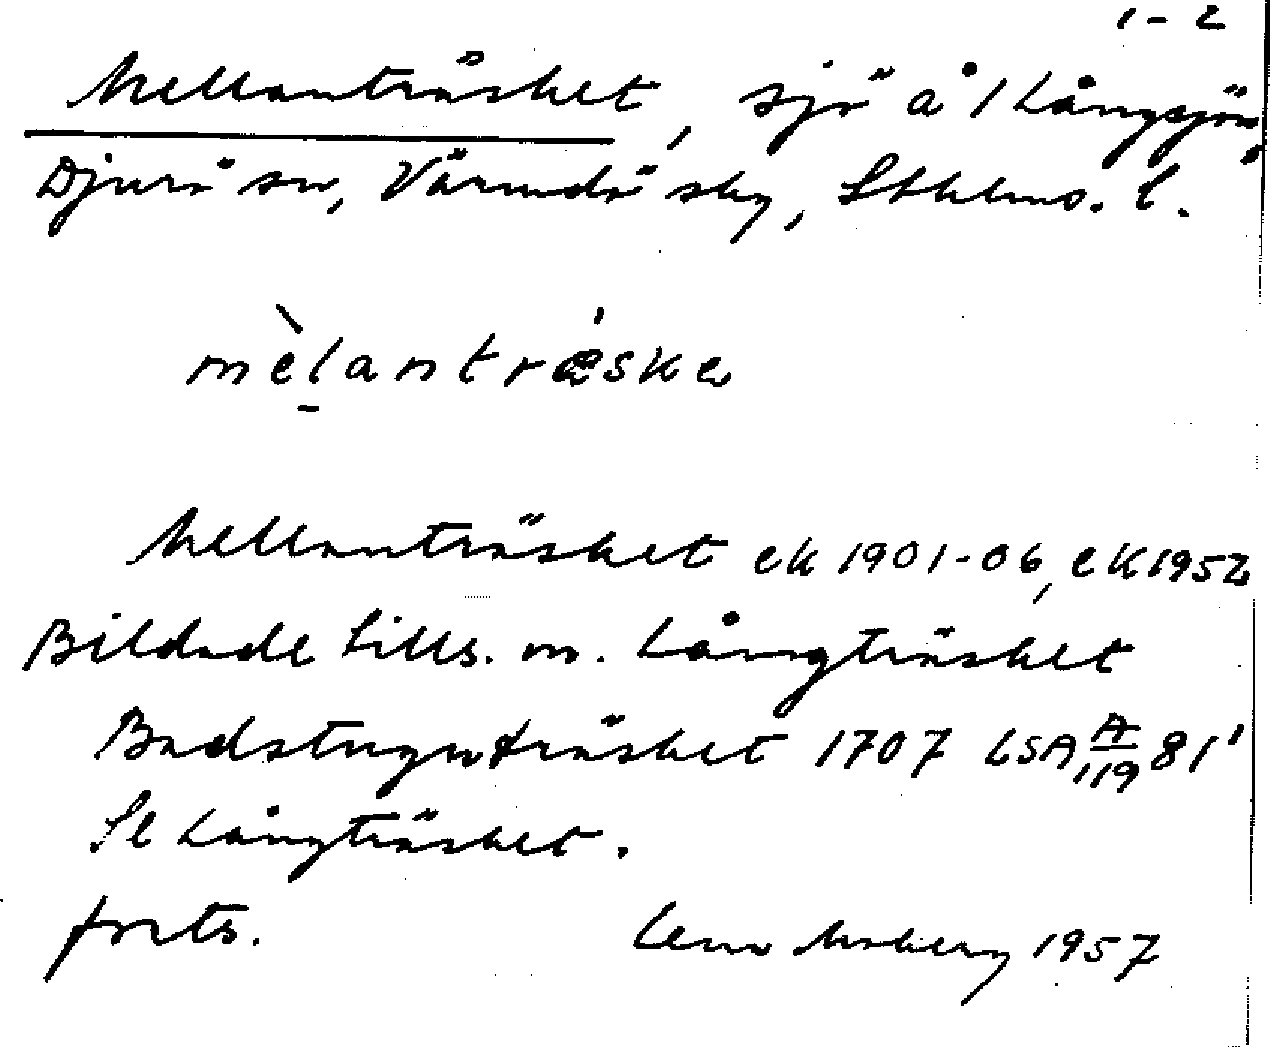 1-2
Mellanträsket, sjö å / Långsjön,
Djurö sn, Värmdö skg, Sthlms. l.
mèlantrǽske
Mellanträsket ek 1901-06, ek 1952
Bildade tills. m. Långträsket
Badstuguträsket 1707 LSA A/119 81¹
Se Långträsket.
forts. Lena Moberg 1957